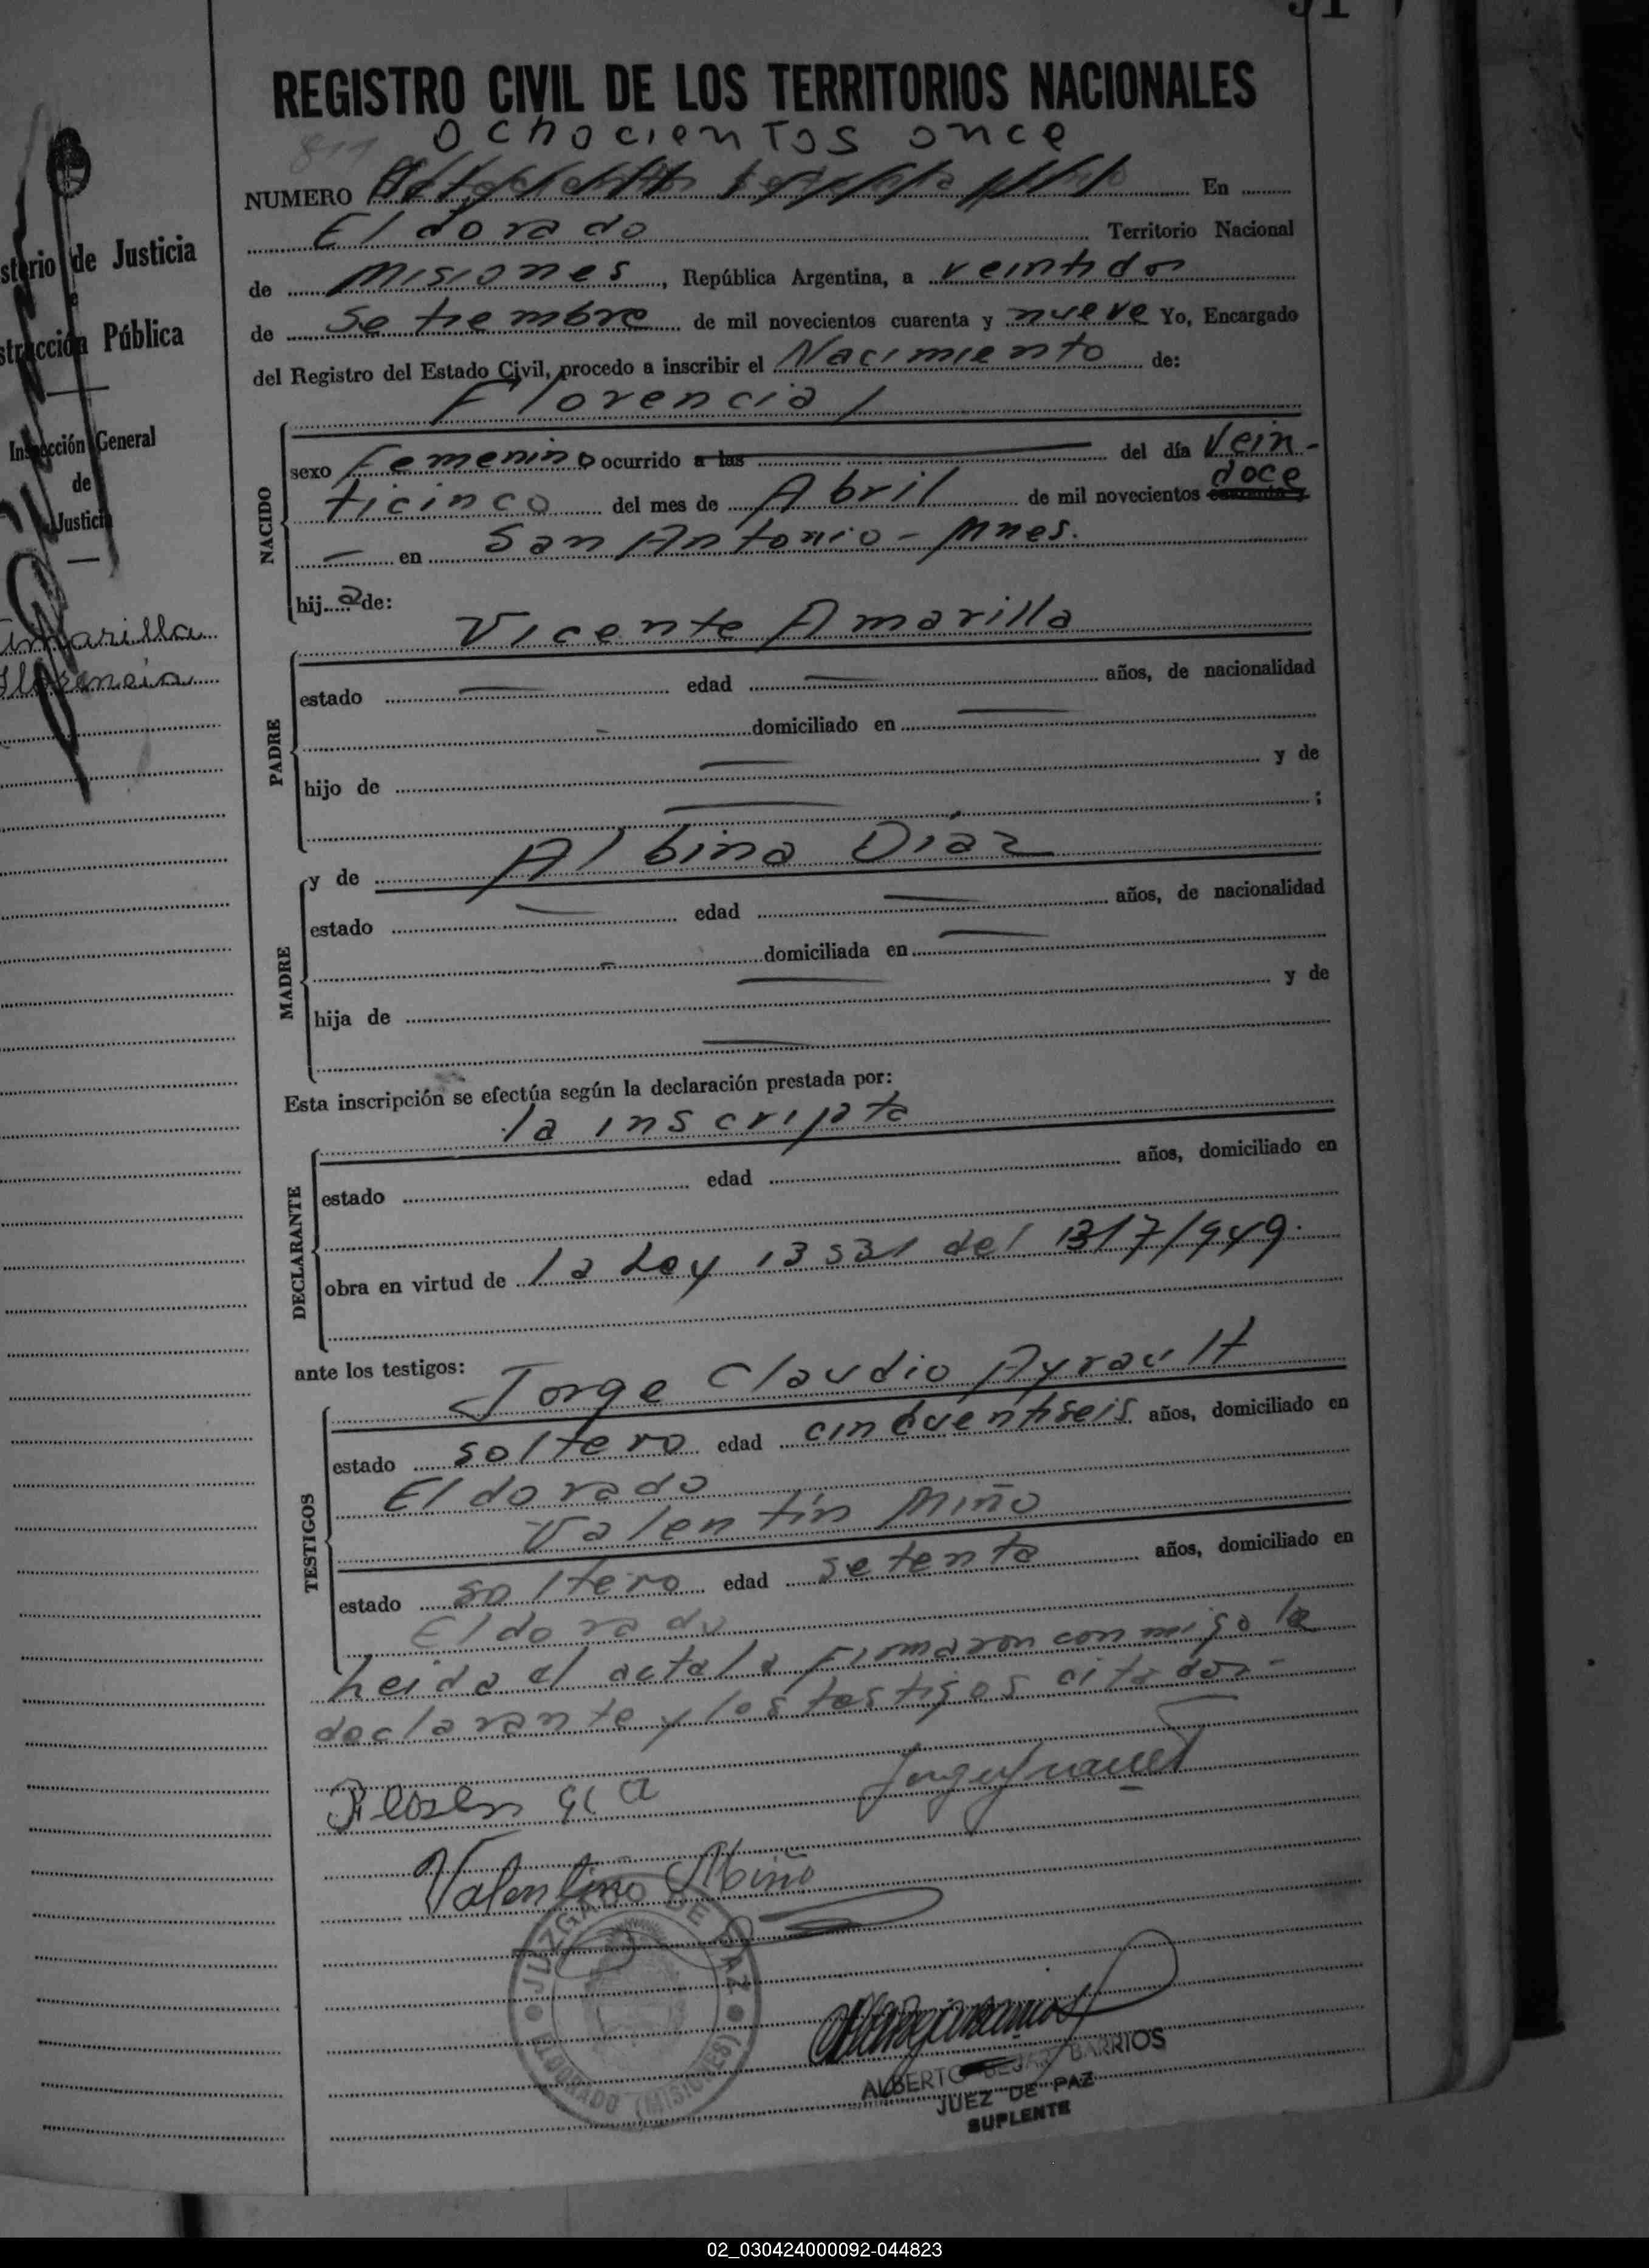 REGISTRO CIVIL DE LOS TERRITORIOS NACIONALES
811
ochocientos once
NUMERO En
Eldorado Territorio Nacional
de Misiones, República Argentina, a veintidos
de Setiembre de mil novecientos cuarenta y nueve Yo, Encargado
del Registro del Estado Civil, procedo a inscribir el Nacimiento de:
Florencia
NACIDO
sexo Femenino ocurrido a las del día Vein-
ticinco del mes de Abril de mil novecientos doce
en San Antonio - Mnes.
hija de:
Vicente Amarilla
PADRE
estado edad años, de nacionalidad
domiciliado en
hijo de y de
;
MADRE
y de Albina Díaz
estado edad años, de nacionalidad
domiciliada en
hija de y de
Esta inscripción se efectúa según la declaración prestada por:
la inscripta
DECLARANTE
estado edad años, domiciliado en
obra en virtud de la Ley 13531 del 13/7/949.
ante los testigos:
Jorge Claudio Ayrault
TESTIGOS
estado soltero edad cincuentiseis años, domiciliado en
Eldorado
Valentín Miño
estado soltero edad setenta años, domiciliado en
Eldorado
heida el acta la firmaron conmigo la
declarante y los testigos citados-
Valentino Miño
JUZGADO DE PAZ
ELDORADO (MISIONES)
ALBERTO BEJAR BARRIOS
JUEZ DE PAZ
SUPLENTE
sterio de Justicia
e
strucción Pública
Inspección General
de
Justicia
Amarilla
Florencia
02_030424000092-044823